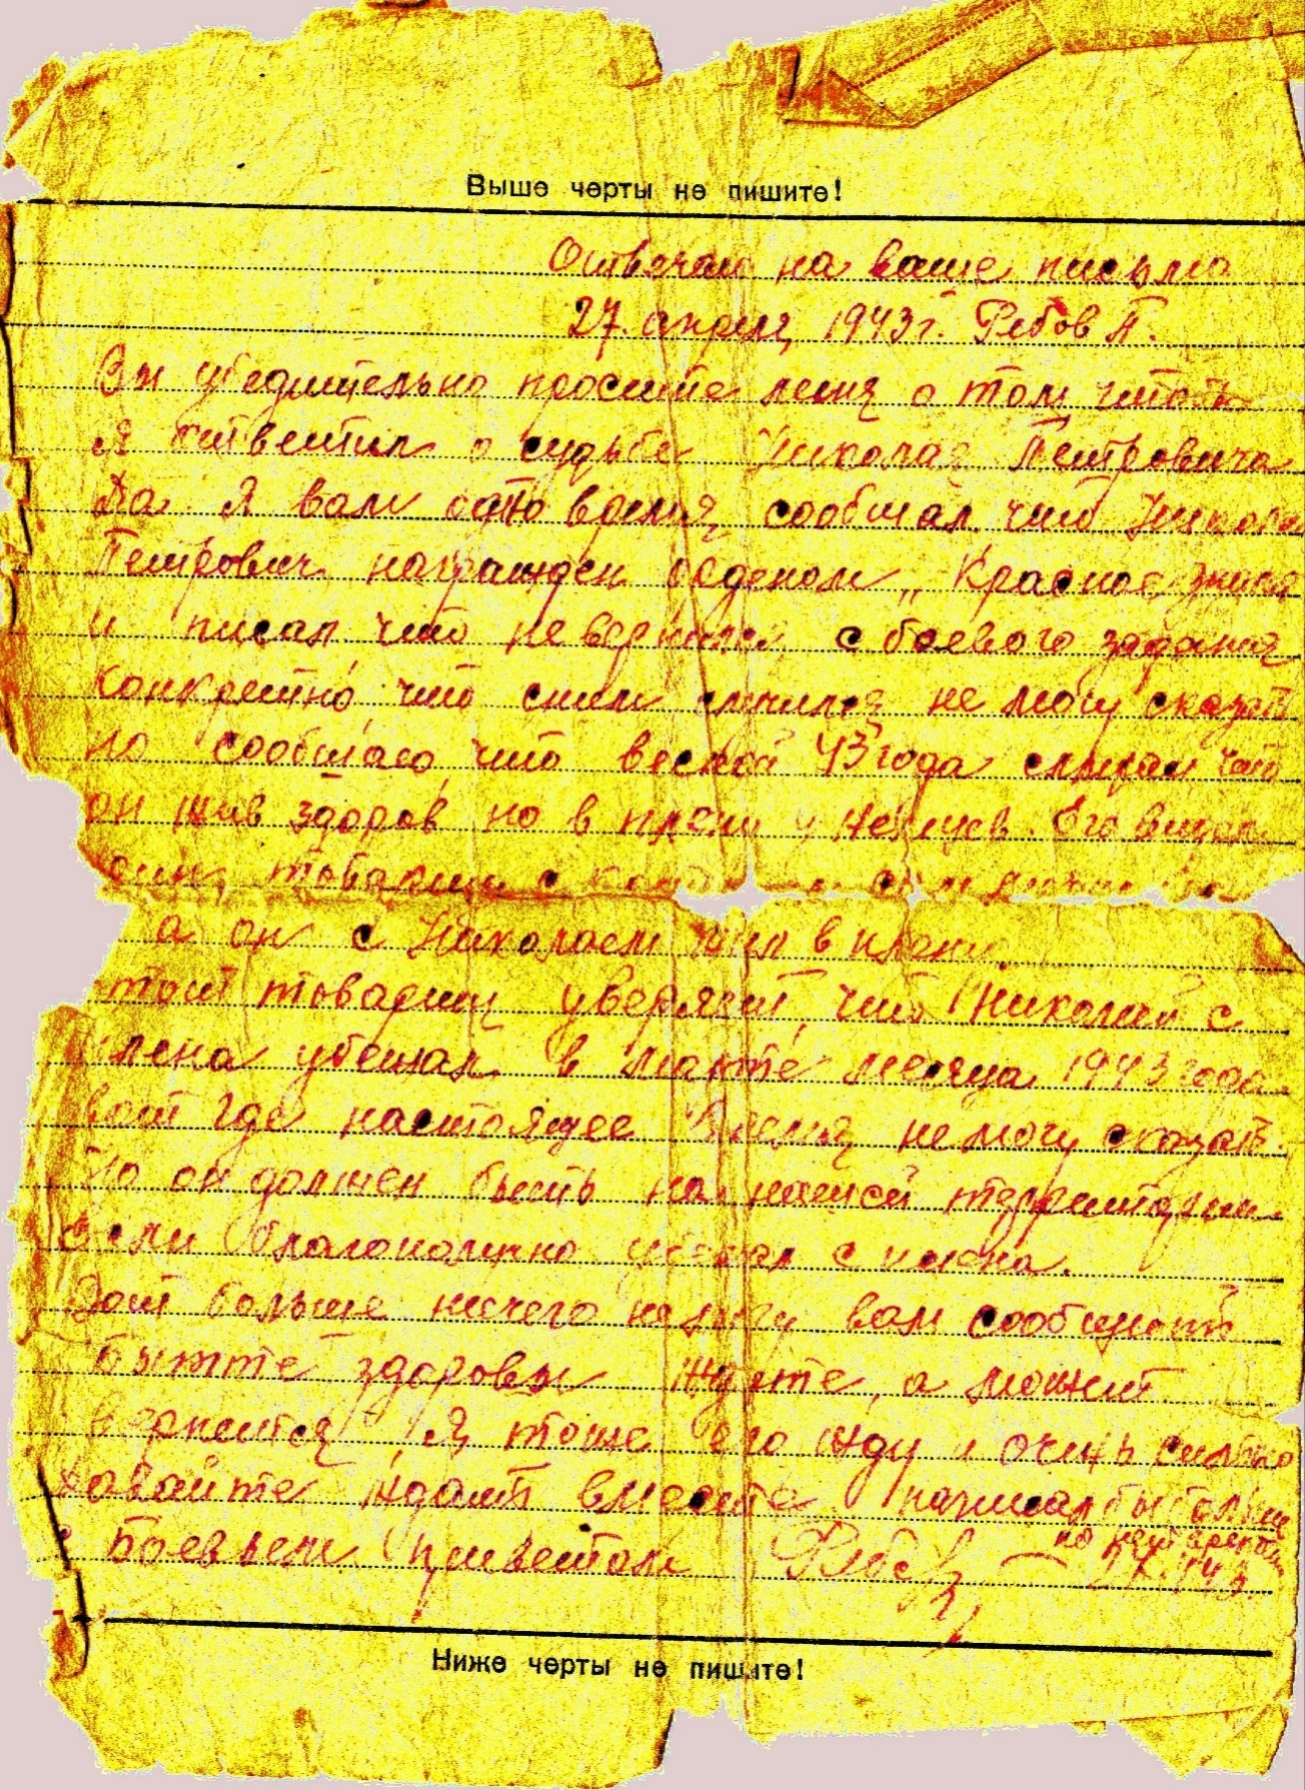 Выше черты не пишите!
Отвечаю на ваше письмо
27 апреля 1943 г. Рябов П.
Вы убедительно просите меня о том чтобы
я ответил о судьбе Николая Петровича
Да. Я вам одно время сообщал что Николай
Петрович награжден орденом „Красное знамя
и писал что не вернулся с боевого задания
конкретно что сним случился не могу сказат
но сообщаю что весной 43 года слыхал что
он жив здоров но в плену у немцев. Его видал
один товарищ с
а он с Николаем был в плену.
тот товарищ уверяет, что Николай с
плена убежал в марте месяца 1943 года
вот где настоящее время не могу сказат.
Но он должен быть на нашей территории.
Если благополучно убежал с плена.
Вот больше ничего не могу вам сообщит
Бутте здоровы ждите, а может
вернется Я тоже его жду и очень сильно
Давайте ждат вместе написал бы больше
но
с Боевым приветом
Ниже черты не пишите!